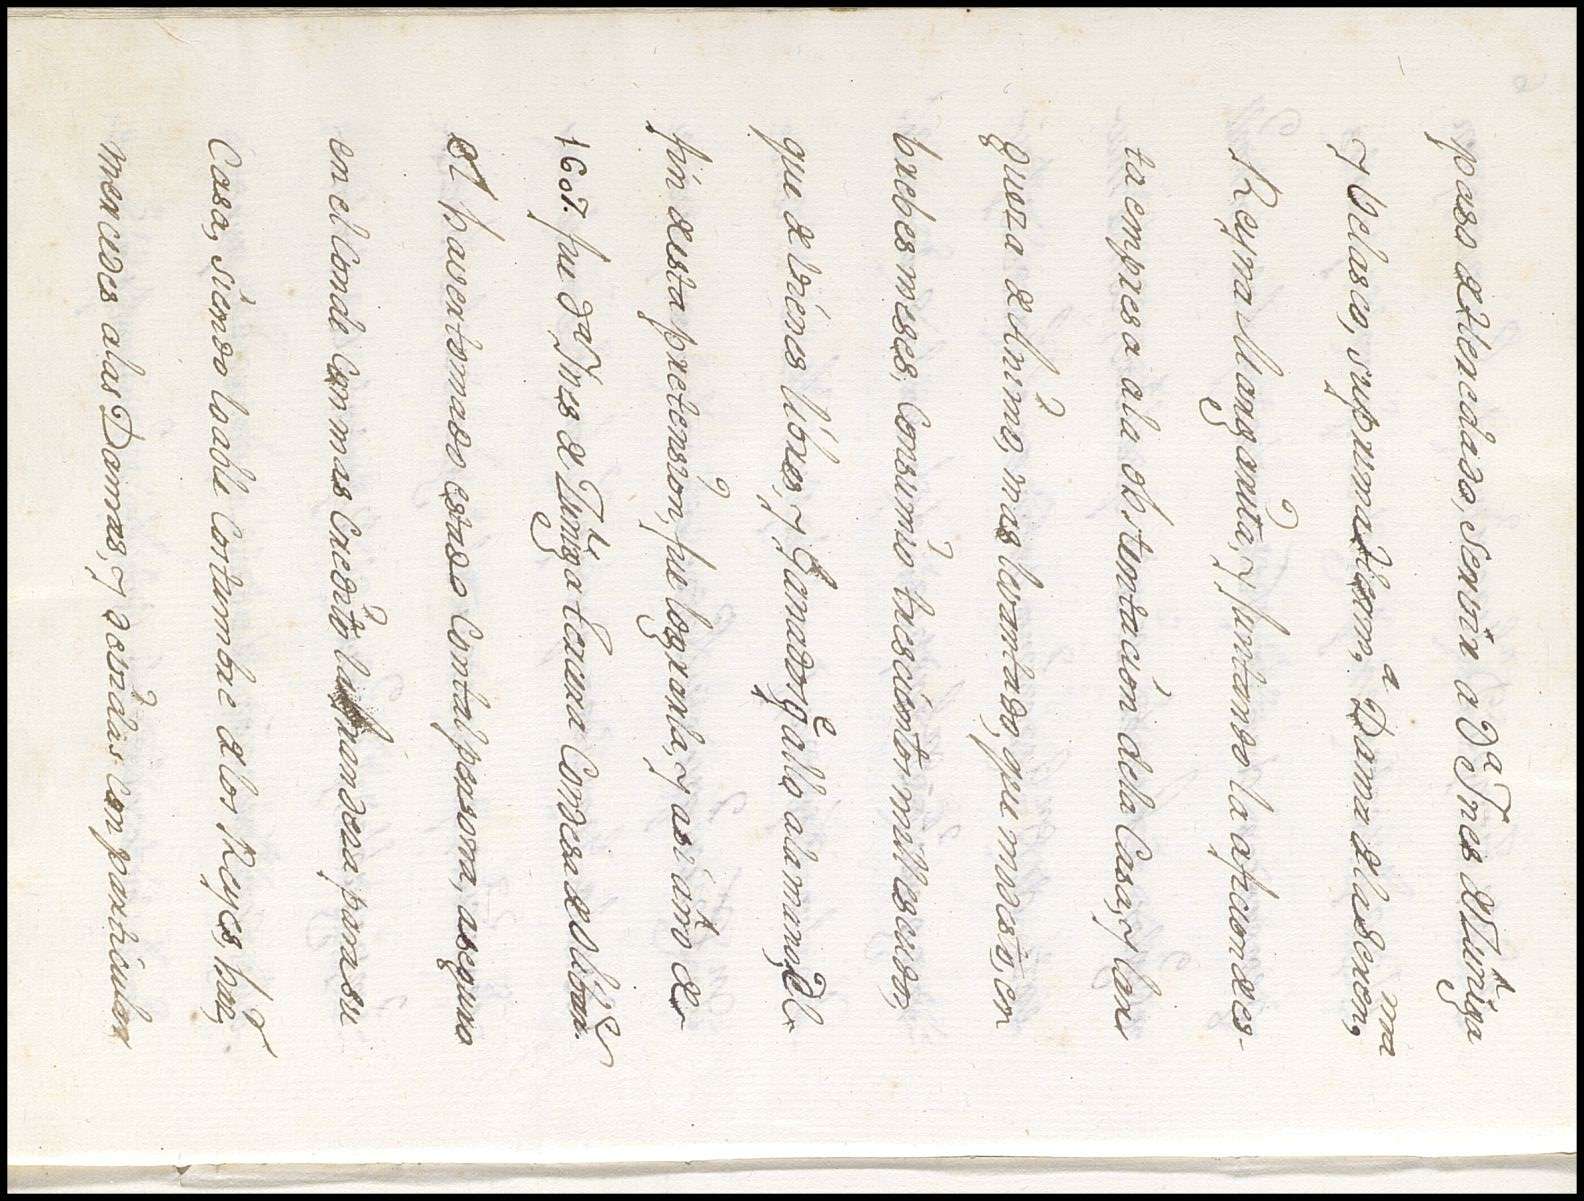 paso atencado, servir a D.ª Ines de Zuñiga
y Velasco, su prima herm.ª Dama de la Seren.ma
Reyna Margarita, y juntando la aficion des-
ta empresa a la obstentacion dela Casa, y lar
gueza de Animo, mas levantado, que mucho, en
brebes meses, Consumio trescientos mill escudos,
que de bienes libres, y Ganados q.e allo a la mano, el
fin desta pretension, fue lograrla, y asi año de
1607. fue D.ª Ines de Zuñiga tercera Condesa de Olibar.es
El haver tomado estado Con tal persona, aseguro
en el Conde Con mas Credito la Grandeza para su
Casa, siendo loable Costumbre de los Reyes, haz.er
mercedes a las Damas, y a estadas Con particular